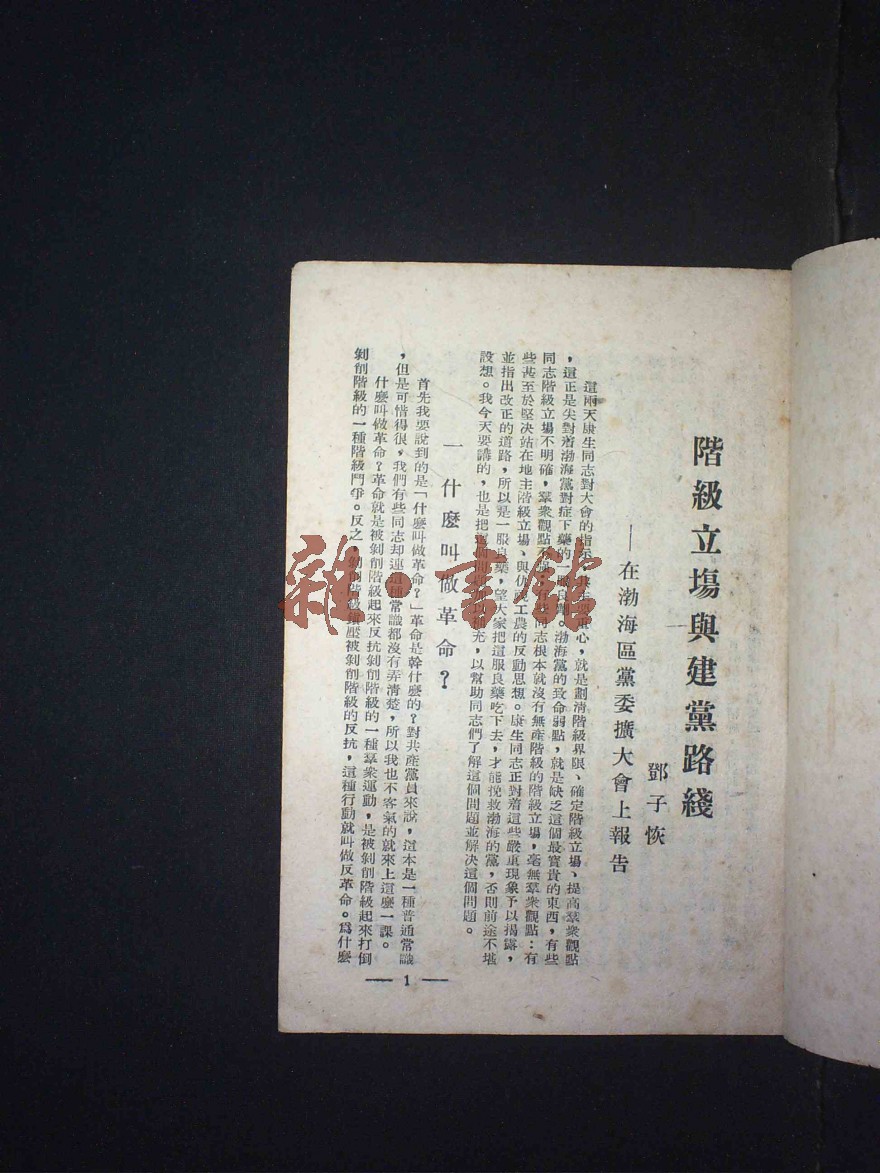 階級立塲與建黨路綫
——在渤海區黨委擴大會上報告
鄧子恢
這兩天康生同志對大會的指示,其主要重心,就是劃清階級界限、確定階級立塲、提高羣衆觀點
,這正是尖對着渤海黨對症下藥的一服良劑。渤海黨的致命弱點,就是缺乏這個最寶貴的東西,有些
同志階級立塲不明確,羣衆觀點不强;有些同志根本就沒有無產階級的階級立塲,毫無羣衆觀點;有
些甚至於堅决站在地主階級立塲、與仇視工農的反動思想。康生同志正對着這些嚴重現象予以揭露,
並指出改正的道路,所以是一服良藥,望大家把這服良藥吃下去,才能挽救渤海的黨,否則前途不堪
設想。我今天要講的,也是把這個問題加以補充,以幫助同志們了解這個問題並解决這個問題。
一 什麽叫做革命?
首先我要說到的是「什麽叫做革命?」革命是幹什麽的?對共產黨員來說,這本是一種普通常識
,但是可惜得很,我們有些同志却連這種常識都沒有弄清楚,所以我也不客氣的就來上這麽一課。
什麽叫做革命?革命就是被剝削階級起來反抗剝削階級的一種羣衆運動,是被剝削階級起來打倒
剝削階級的一種階級鬥爭。反之,剝削階級鎮壓被剝削階級的反抗,這種行動就叫做反革命。爲什麽
— 1 —
雜·書館